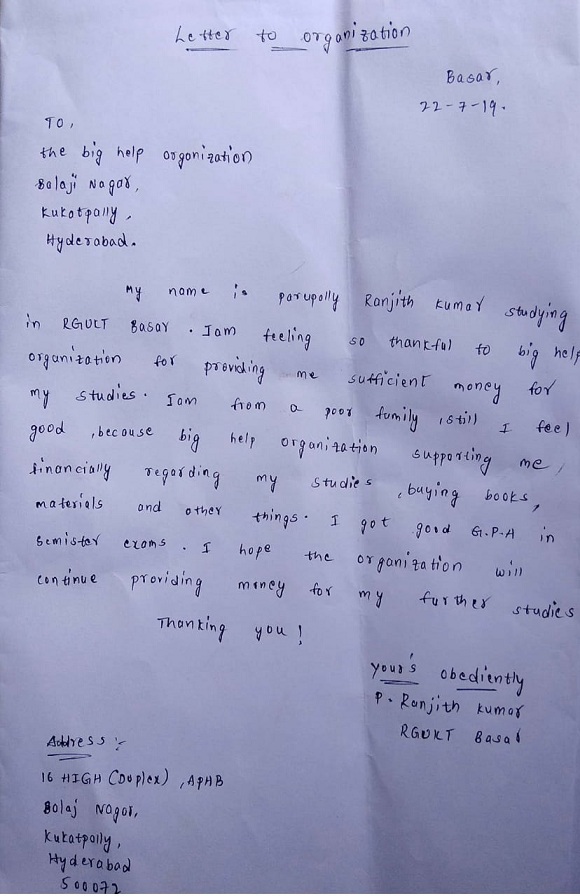 Letter to organization
Basar,
22-7-19.
To,
the big help organization
Balaji Nagar,
Kukatpally,
Hyderabad.
My name is parupally Ranjith Kumar studying
in RGUCT Basar. Iam feeling so thankful to big help
organization for providing me sufficient money for
my studies. Iam from a poor family, still I feel
good, because big help organization supporting me,
financially regarding my studies, buying books,
materials and other things. I got good G.P.A in
Semister exams. I hope the organization will
continue providing money for my further studies
Thanking you!
Your's obediently
P. Ranjith Kumar
RGUKT Basar
Address :-
16 HIGH (Duplex), APHB
Balaj Nagar,
Kukatpally,
Hyderabad
500072